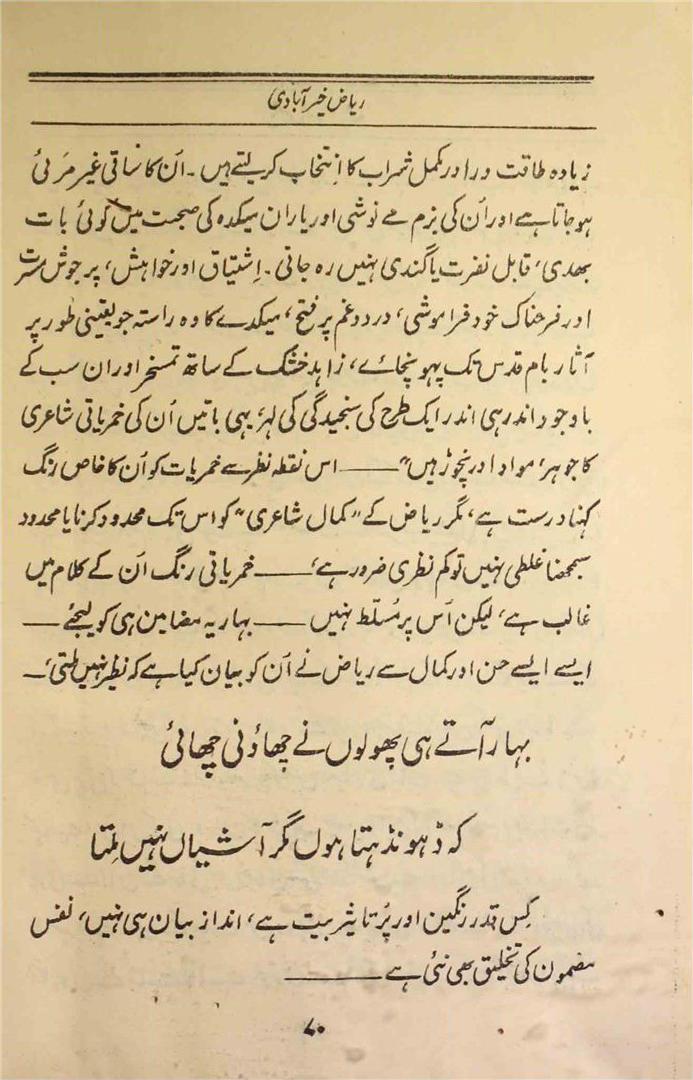 ریاض خیرآبادی
زیادہ طاقت ور اور مکمل شراب کا اِنتخاب کر لیتے ہیں ۔ اُن کا ساقی غیر مَرئی
ہو جاتا ہے اور اُن کی بزم مے نوشی اور یاران میکدہ کی صحبت میں کوئی بات
بھدی، قابل نفرت یا گندی نہیں رہ جاتی ۔ اِشتیاق اور خواہش، پر جوش مسرت
اور فرحناک خود فراموشی، درد و غم پر فتح، میکدے کا وہ راستہ جو یقینی طور پر
آثار بام قدس تک پہونچائے، زاہد خشک کے ساتھ تمسخر اور ان سب کے
باوجود اندر ہی اندر ایک طرح کی سنجیدگی کی لہر، یہی باتیں اُن کی خمریاتی شاعری
کا جوہر، مواد اور نچوڑ ہیں" ــــــ اس نقطہ نظر سے خمریات کو اُن کا خاص رنگ
کہنا درست ہے، مگر ریاض کے "کمال شاعری" کو اس تک محدود کرنا یا محدود
سمجھنا غلطی نہیں تو کم نظری ضرور ہے، ــــــ خمریاتی رنگ اُن کے کلام میں
غالب ہے، لیکن اُس پر مُسلّط نہیں ــــــ بہاریہ مضامین ہی کو لیجئے ــــ
ایسے ایسے حسن اور کمال سے ریاض نے اُن کو بیان کیا ہے کہ نظیر نہیں ملتی، ـــ
بہار آتے ہی پھولوں نے چھاؤنی چھائی
کہ ڈہونڈہتا ہوں مگر آشیاں نہیں مِلتا
کِس قدر رنگین اور پُر تاثیر بیت ہے، انداز بیان ہی نہیں، نفس
مضمون کی تخلیق بھی نئی ہے ــــــــ
۷۰